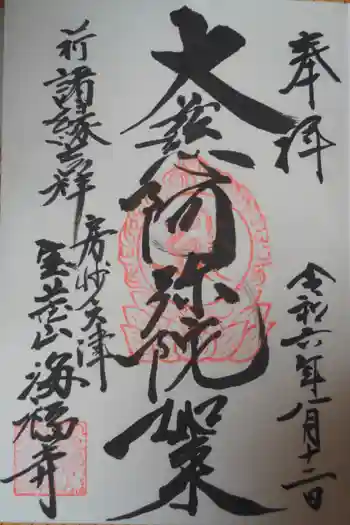 奉拝
令和六年 月十二日
大慈阿弥陀如来
祈諸縁吉祥
房州 津
山 海福寺